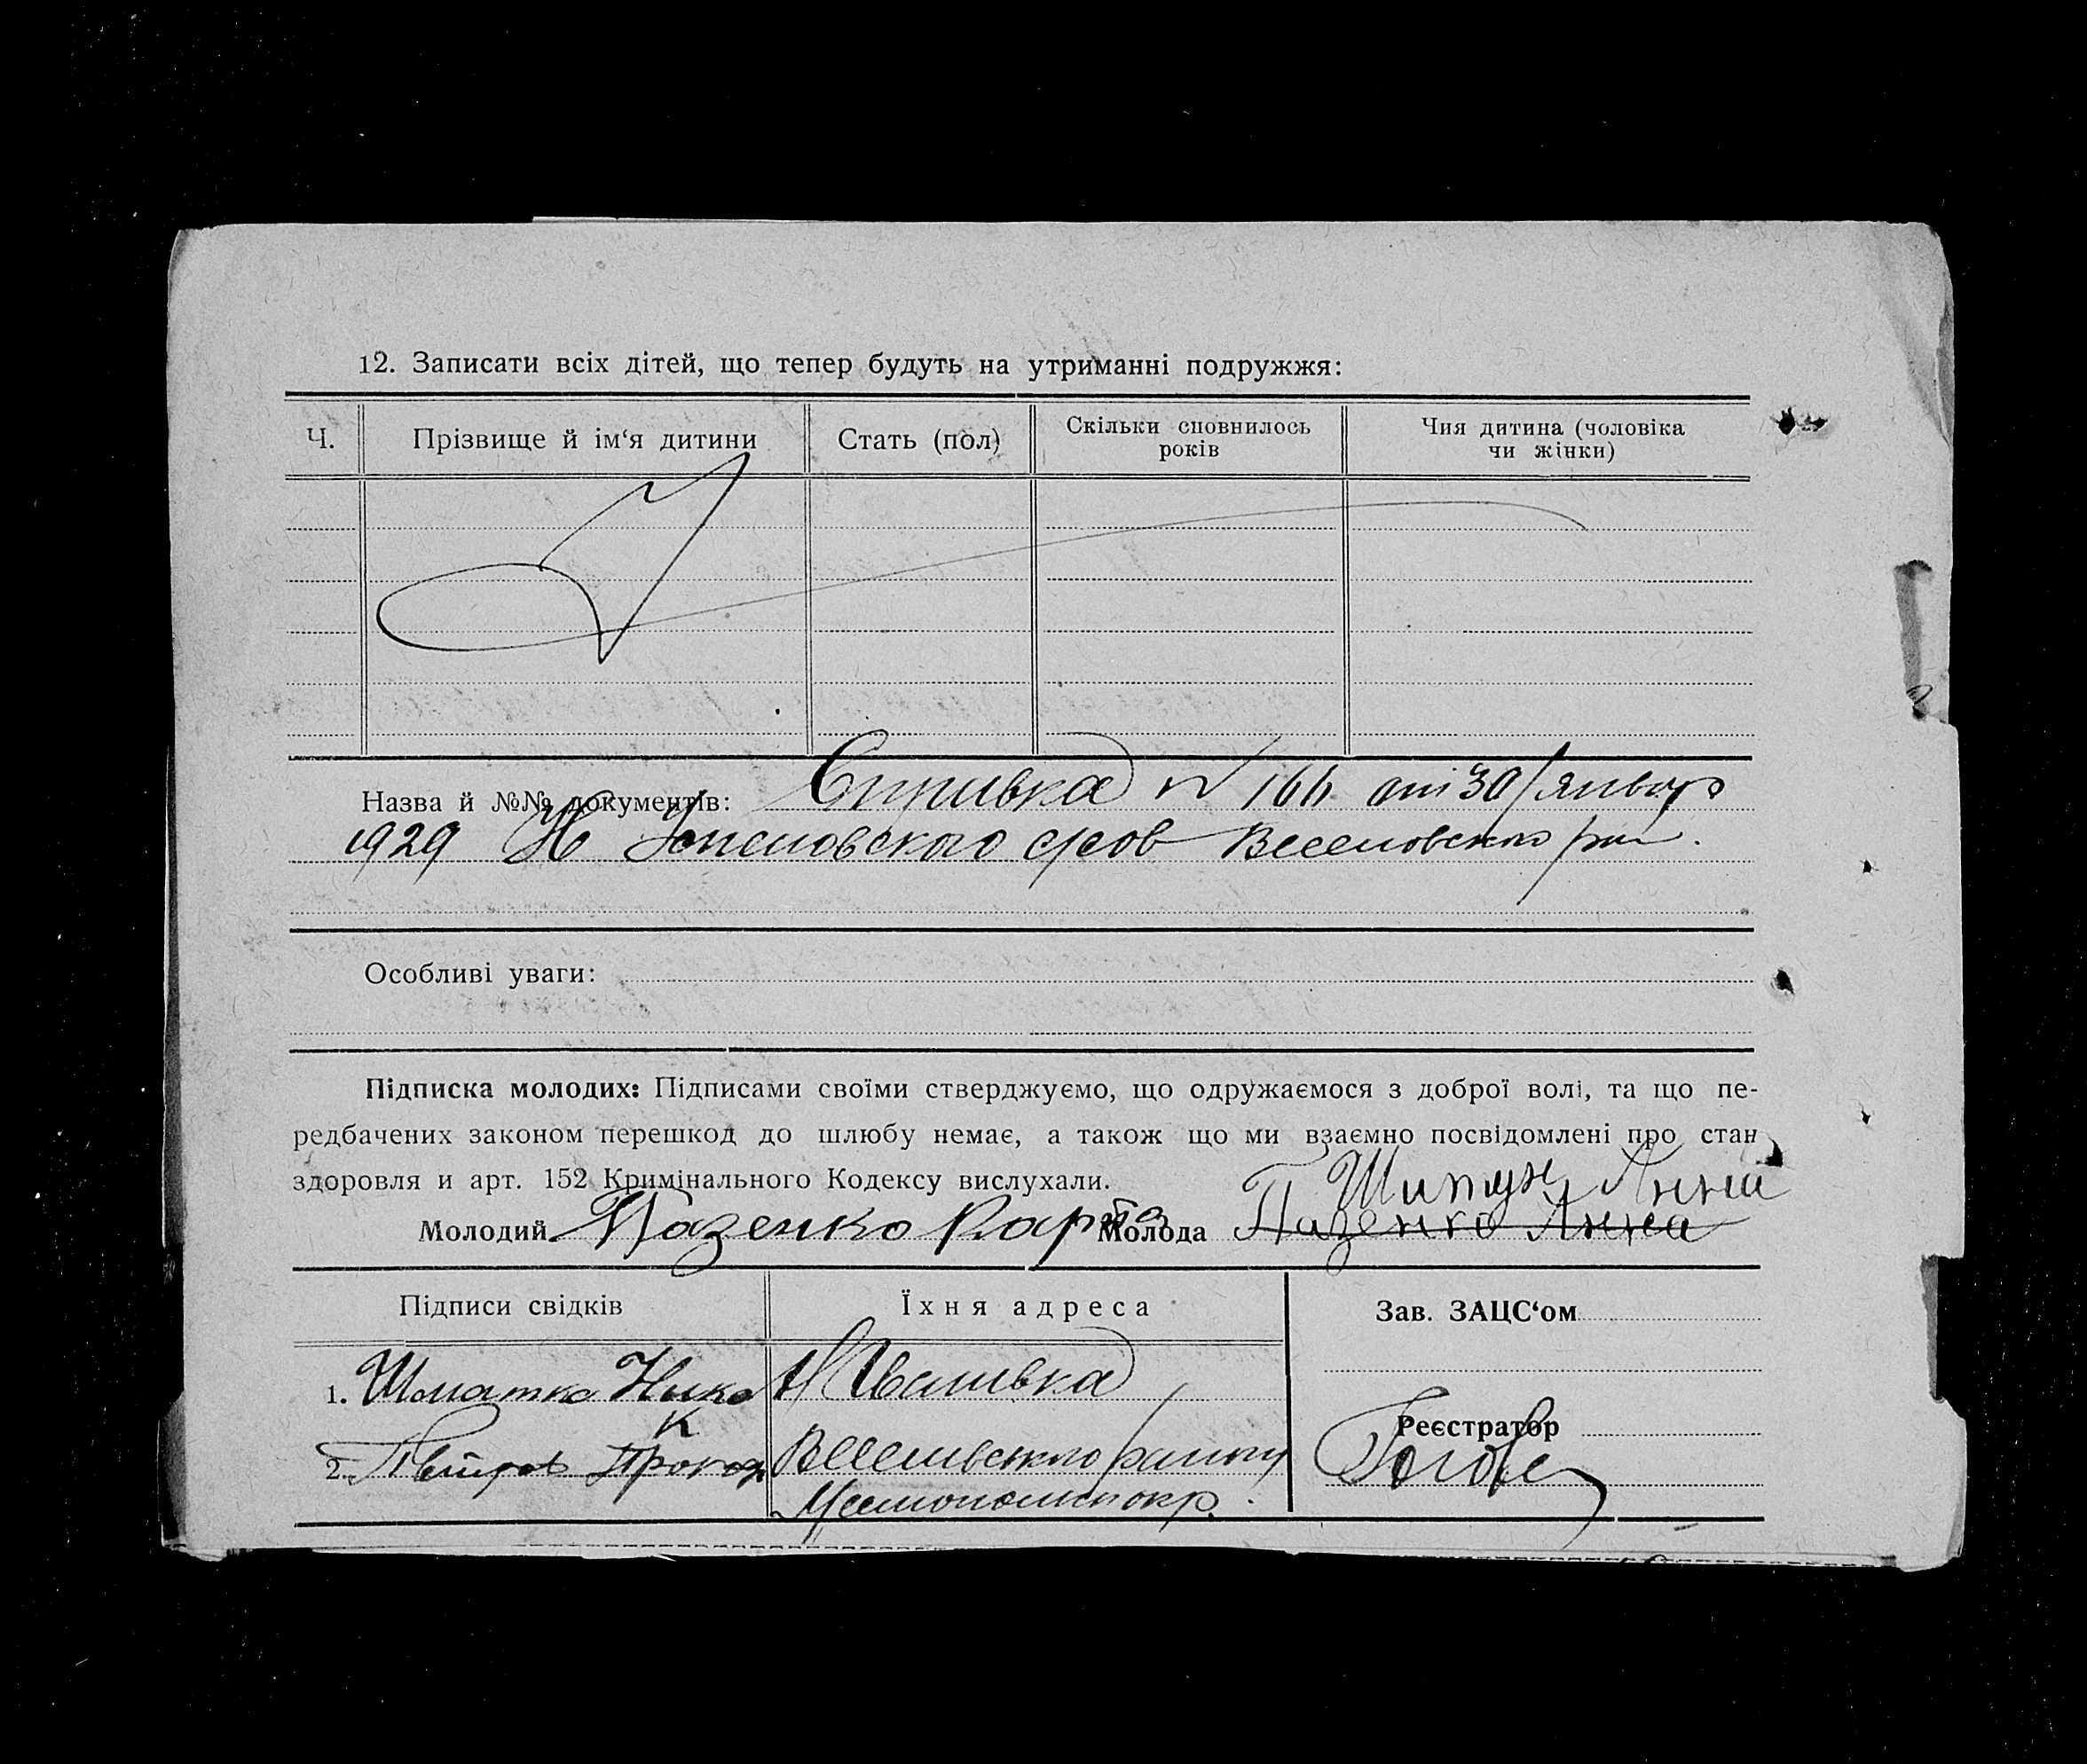 12. Записати всіх дітей, що тепер будуть на утриманні подружжя:
Ч. Прізвище й ім‘я дитини Стать (пол) Скільки сповнилось років Чия дитина (чоловіка чи жінки)
Назва й №№ документів: Справка № 166 от 30/января
1929 Н Успеновского с/сов Веселовского рай.
Особливі уваги:
Підписка молодих: Підписами своїми стверджуємо, що одружаємося з доброї волі, та що пе-
редбачених законом перешкод до шлюбу немає, а також що ми взаємно посвідомлені про стан
здоровля и арт. 152 Кримінального Кодексу вислухали.
Анна
Молодий Пазенко Молода Пазенко Анна
Підписи свідків Їхня адреса Зав. ЗАЦС‘ом
1. Шматко
Реєстратор
2. Петров